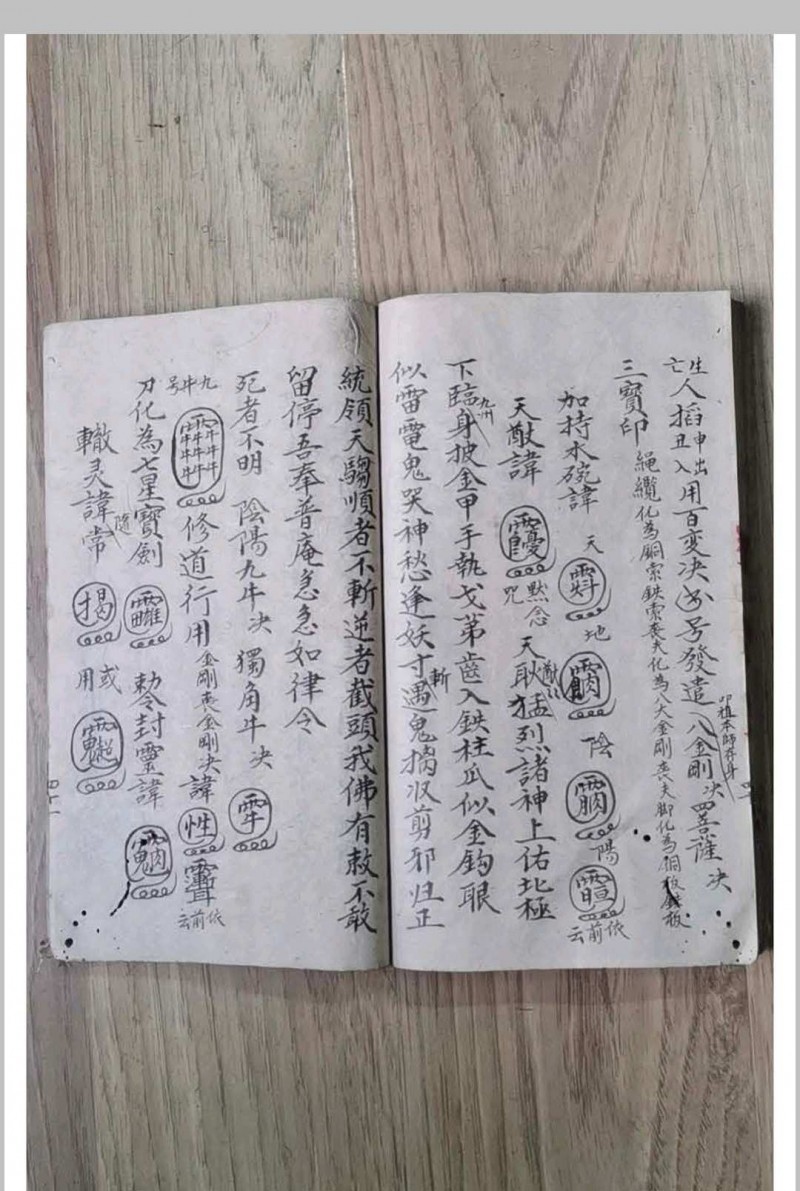 生亡人搯申丑出入用百变决 号發遣八金剛决四菩薩决
叩祖本師存身
三寶印 繩纜化為銅索鉄索丧夫化為八大金剛丧夫脚化為铜板 板
加持水碗諱 天 地 陰 陽 依前云
天猷諱 默念咒 天猷猛烈諸神上佑北極
下臨九州身披金甲手執戈 齒入鉄柱爪似金鈎眼
似雷電鬼哭神愁逢妖寸斬遇鬼擒收剪邪归正
統領天騶順者不斬逆者截頭我佛有敕不敢
留停吾奉普庵急急如律令
死者不明 陰陽九牛决 獨角牛决
九牛号 修道行用金剛丧金剛决諱 性 依前云
刀化為七星寶劍 勅令封靈諱
轍灵諱常随 揭 或用